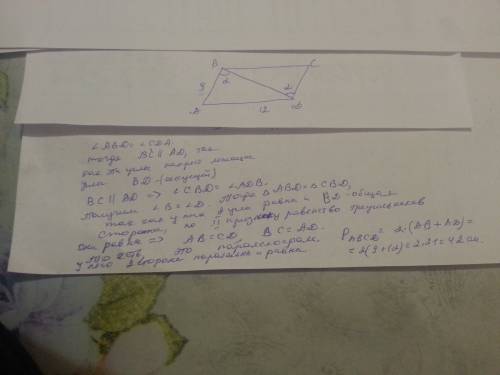 B C
9 2 2
A 12 D
∠ABD = ∠CDA.
тогда BC ∥ AD, так
как эти углы накрест лежащи
для BD - (секущей)
BC ∥ AD => ∠CBD = ∠ADB.
Получим ∠B = ∠D. Тогда ΔABD = ΔCBD,
так как у них 2 угла равна и BD - общая
сторона, по II признаку равенство треугольников
Они равна => AB = CD, BC = AD.
то есть это параллелограм.
у него 2 стороны параллельна и равна.
P ABCD = 2·(AB + AD) =
= 2(9 + 12) = 2·21 = 42 см.